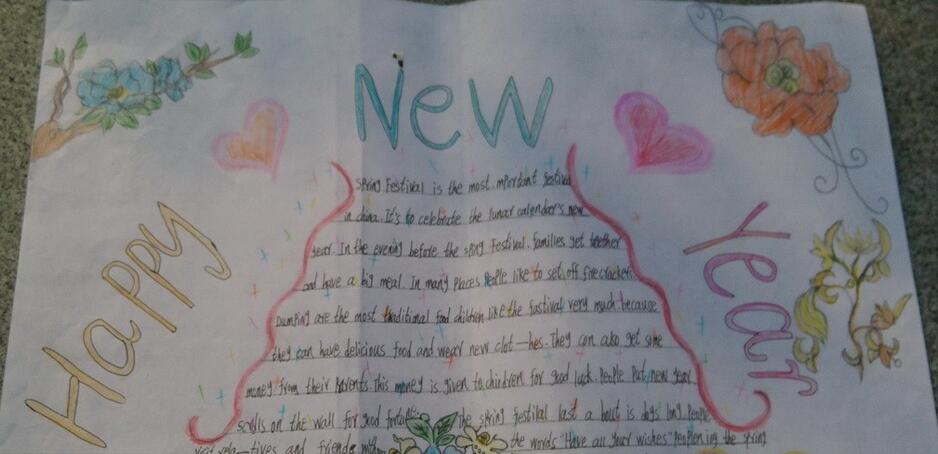 New
Happy
Year
Spring Festival is the most mportant festival
in china. It's to celebrate the lunar calendar's new
year. In the evening before the spring Festival. families get together
and have a big meal. In many places people like to set off firecrackers
Dumping are the most traditional food children like the fastival very much. because
they can have delicious food and wear new clot-hes. They can also get some
money from their parents. This money is given to children for good luck. People put new year
scrolls on the wall for good fortune. The spring festival last a bout is days long. people
visit rela-tives and friends with the words "Have all your wishes" the spring